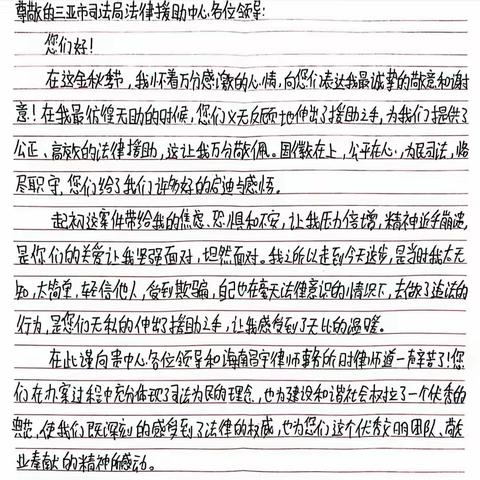 尊敬的三亚市司法局法律援助中心各位领导:
您们好!
在这金秋季节,我怀着万分感激的心情,向您们表达我最诚挚的敬意和谢
意!在我最彷徨无助的时候,您们义无反顾地伸出了援助之手,为我们提供了
公正、高效的法律援助,这让我万分敬佩。国徽在上,公平在心,为民司法,恪
尽职守,您们给了我们许多好的启迪与感悟。
起初这案件带给我的焦虑、恐惧和不安,让我压力倍增,精神近乎崩溃,
是你们的关爱让我坚强面对,坦然面对。我之所以走到今天这步,是当时我太无
知,太简单,轻信他人,受到欺骗,自己也在毫无法律意识的情况下,去做了违法的
行为,是您们无私的伸出了援助之手,让我感受到了无比的温暖。
在此谨向贵中心各位领导和海南昌宇律师事务所时律师道一声辛苦了!您
们在办案过程中充分体现了司法为民的理念,也为建设和谐社会树立了一个优秀的
典范,使我们既深刻的感受到了法律的权威,也为您们这个优秀文明团队、敬
业奉献的精神所感动。